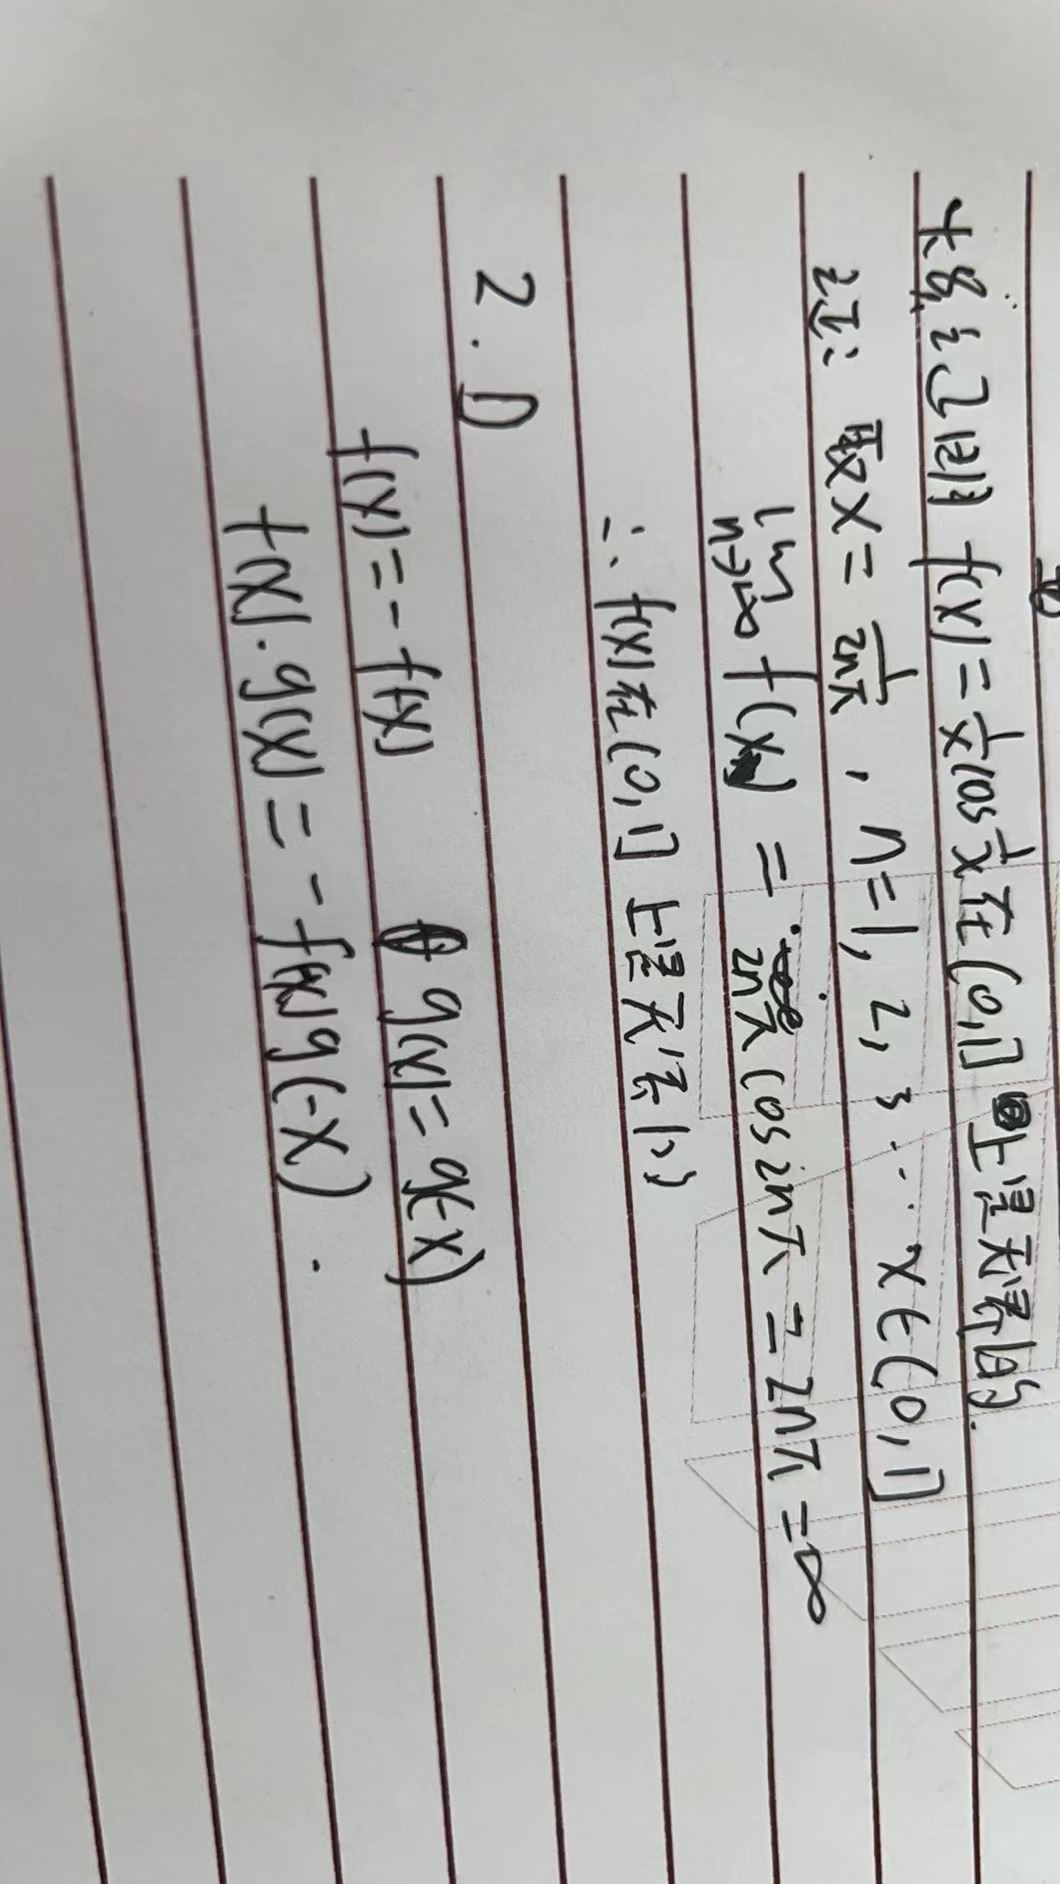 证明 f(x)=1/x cos 1/x 在(0,1]上是无界的.
证: 取x=1/2nπ, n=1, 2, 3... x∈(0,1]
lim n→+∞ f(x) = 2nπ cos2nπ = 2nπ = ∞
∴ f(x)在(0,1]上是无
2. 1)
f(x)=-f(x) g(x)=g(-x)
f(x)·g(x)=-f(x)g(-x).